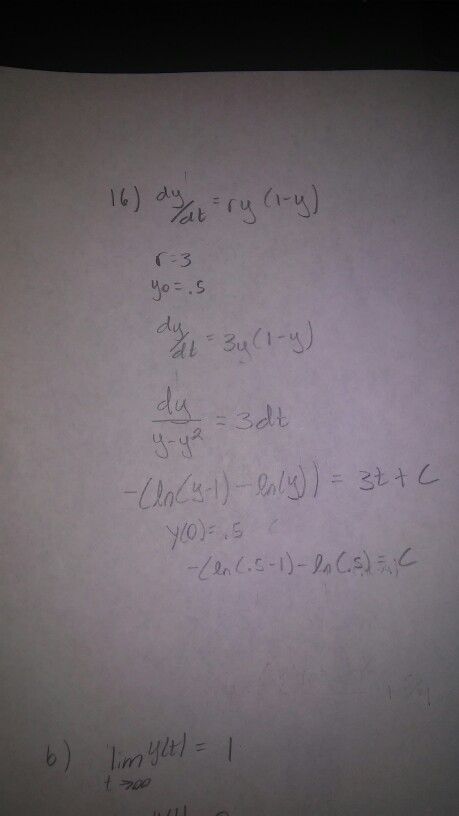 16) dy/dt = ry(1-y)
r=3
y0=.5
dy/dt = 3y(1-y)
dy/y-y² = 3dt
-(ln(y-1)-ln(y)) = 3t+C
y(0)=.5
-(ln(.5-1)-ln(.5)=C
b) lim y(t) = 1
t→∞